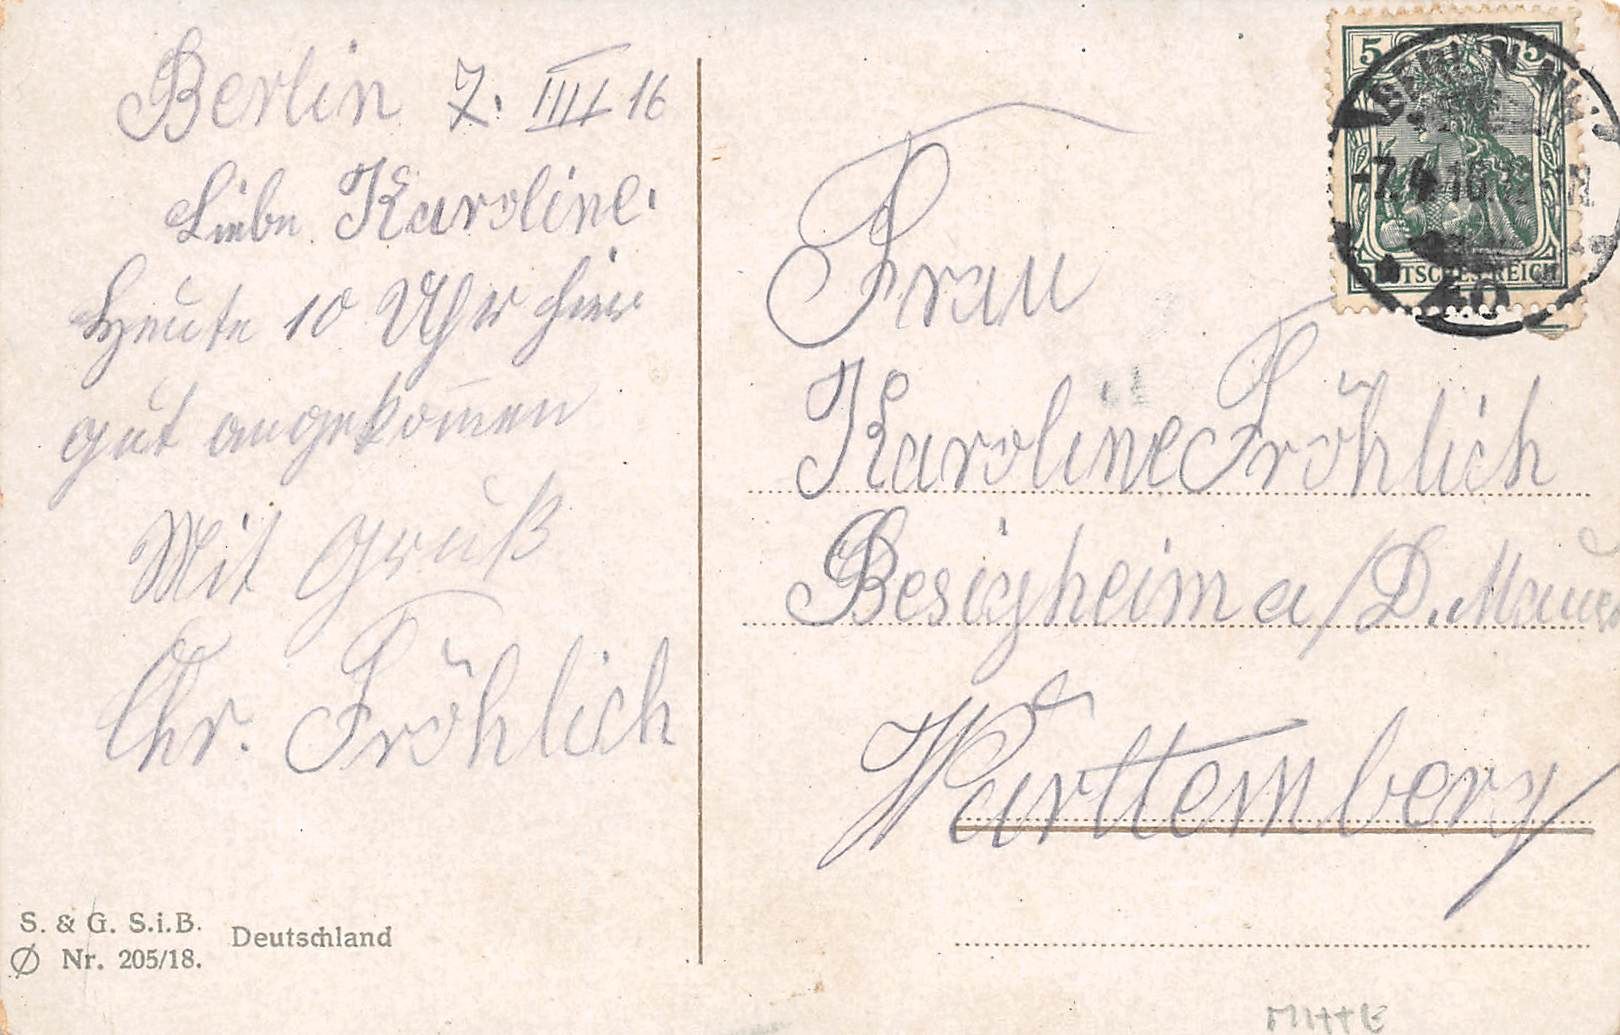 Berlin 7. IIII 16
Liebe Karoline.
Heute 10 Uhr hier
gut angekom̅en
Mit Gruß
Chr. Fröhlich
S. & G. S.i.B.
Nr. 205/18.
Deutschland
5 5
DEUTSCHES REICH
BERLIN NW
-7.4.16.
40
Frau
Karoline Fröhlich
Besigheim a/D. Mauer
Württemberg
MITTE